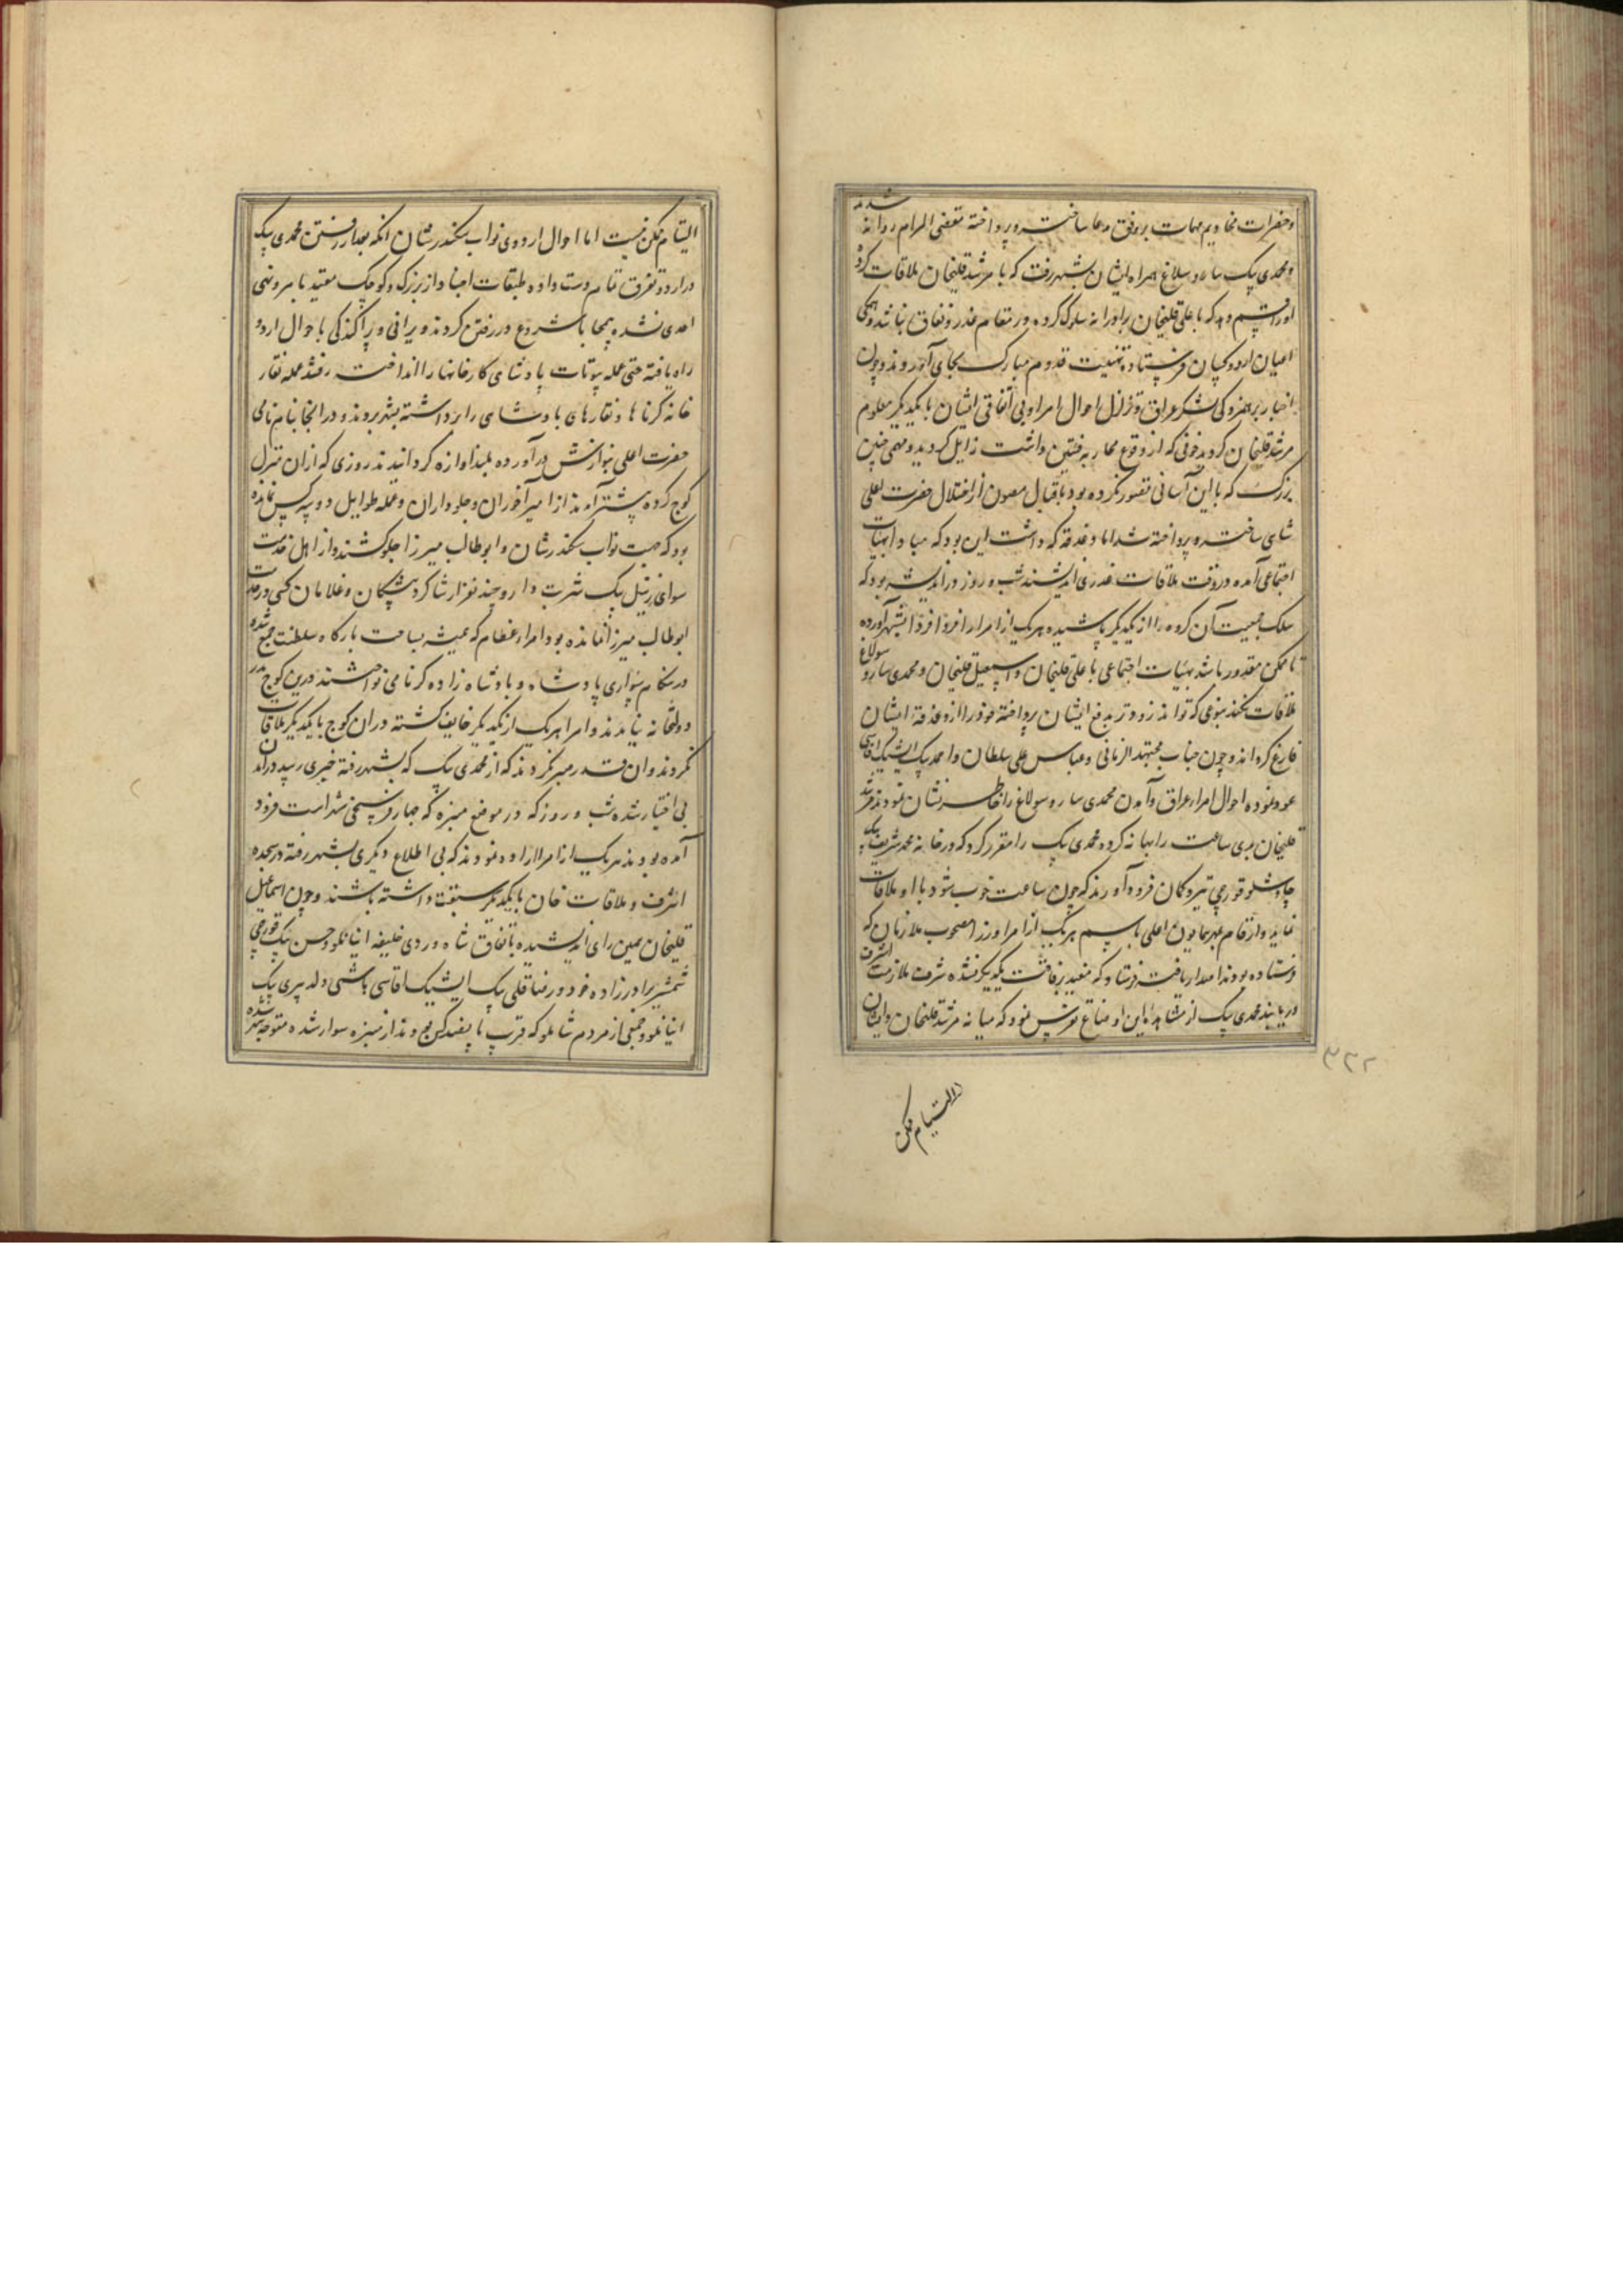 وحضرات مخادیم مهمات بروفق مدعا ساخته و پرداخته مقضی المرام روانه شدند
و محمدی بیک سارو سلاغ همراه ایشان بشهر رفت که با مرشد قلیخان ملاقات کرده
اورا قسم دهد که با علی قلیخان برادرانه سلوک کرده در مقام غدر و نفاق نباشد و همگی
اعیان اردو کسان فرستاده تهنیت قدوم مبارک بجای آوردند و چون
اخبار برهمزدگی لشکر عراق و تزلزل احوال امرا و بی اتفاقی ایشان با یکدیگر معلوم
مرشد قلیخان گردید خوفی که از وقوع محاربه فئتین داشت زایل گردید و مهمی چنین
بزرگ که باین آسانی تصور نکرده بود باقبال مصون از اختلال حضرت اعلی
شاهی ساخته و پرداخته شد اما دغدغه که داشت این بود که مبادا بهیات
اجتماعی آمده در وقت ملاقات غدری اندیشند شب و روز در اندیشه بود که
سلک جمعیت آن گروه را از یکدیگر پاشیده هریک از امرا را فردا فردا بشهر آورده
تا ممکن مقدور باشد بهیات اجتماعی با علی قلیخان و اسمعیل قلیخان و محمدی سارو سولاغ
ملاقات نکند بنوعی که تواند زودتر بدفع ایشان پرداخته خود را از دغدغه ایشان
فارغ گرداند و چون جناب مجتهد الزمانی و عباس علی سلطان و احمد بیک ایشیک اقاسی
عود نموده احوال امراء عراق و آمدن محمدی سارو سولاغ را خاطر نشان نمودند مرشد
قلیخان بدی ساعت را بهانه کرده محمدی بیک را مقرر کرد که در خانه محمد شریف بیک
چاوشلو قورچی تیر و کمان فرود آورند که چون ساعت خوب شود با او ملاقات
نماید و ارقام مهر همایون اعلی باسم هریک از امرا ورزا مصحوب ملازمان که
فرستاده بودند اصدار یافته فرستاد که مقید برفاقت یکدیگر نشده شرف ملازمت اشرف
دریابند محمدی بیک از مشاهده این اوضاع تفرس نمود که میانه مرشد قلیخان و ایشان
التیام ممکن
۳۳۲
التیام ممکن نیست اما احوال اردوی نواب سکندرشان آنکه بعد از رفتن محمدی بیک
در اردو تفرق تمام دست داده طبقات اجناد از بزرگ و کوچک مقید بامر و نهی
احدی نشده بیمحابا شروع در رفتن کردند و ویرانی و پراکندگی باحوال اردو
راه یافته حتی عمله بیوتات پادشاهی کارخانها را انداخته رفتند عمله نقار
خانه کرناها و نقارهای پادشاهی را برداشته بشهر بردند و در انجا بنام نامی
حضرت اعلی بنوازش درآورده بلند آوازه گردانیدند روزی که از ان منزل
کوچ کرده پیشتر آمدند از امیرآخوران و جلوداران و عمله طوایل دو سه کس نمانده
بود که جهت نواب سکندرشان و ابوطالب میرزا جلو کشند و از اهل خدمت
سوای زنبیل بیک شربت دار و چند نفر از شاگرد پیشگان و غلامان کسی در خدمت
ابوطالب میرزا نمانده بود امراء عظام که همیشه بساحت بارگاه سلطنت جمع شده
در هنگام سواری پادشاه و پادشاه زاده کرنا می نواختند درین کوچ بدر
دولتخانه نیامدند و امرا هریک از یکدیگر خایف گشته در ان کوچ با یکدیگر ملاقات
نکردند و ان قدر صبر نکردند که از محمدی بیک که بشهر رفته خبری رسد در ان
بی اختیار شده شب و روز که در موضع مبزه که چهار فرسخی شهر است فرود
آمده بودند هریک از امرا اراده نمودند که بی اطلاع دیگری بشهر رفته در سجده
اشرف و ملاقات خان با یکدیگر سبقت داشته باشند و چون اسماعیل
قلیخان همین رای اندیشیده باتفاق شاه وردی خلیفه اینانلو و حسن بیک قورچی
شمشیر برادرزاده خود و رضا قلی بیک ایشیک اقاسی باشی ولد پیری بیک
اینانلو و جمعی از مردم شاملو که قرب پانصد کس بودند از مبزه سوار شده متوجه شهر شدند